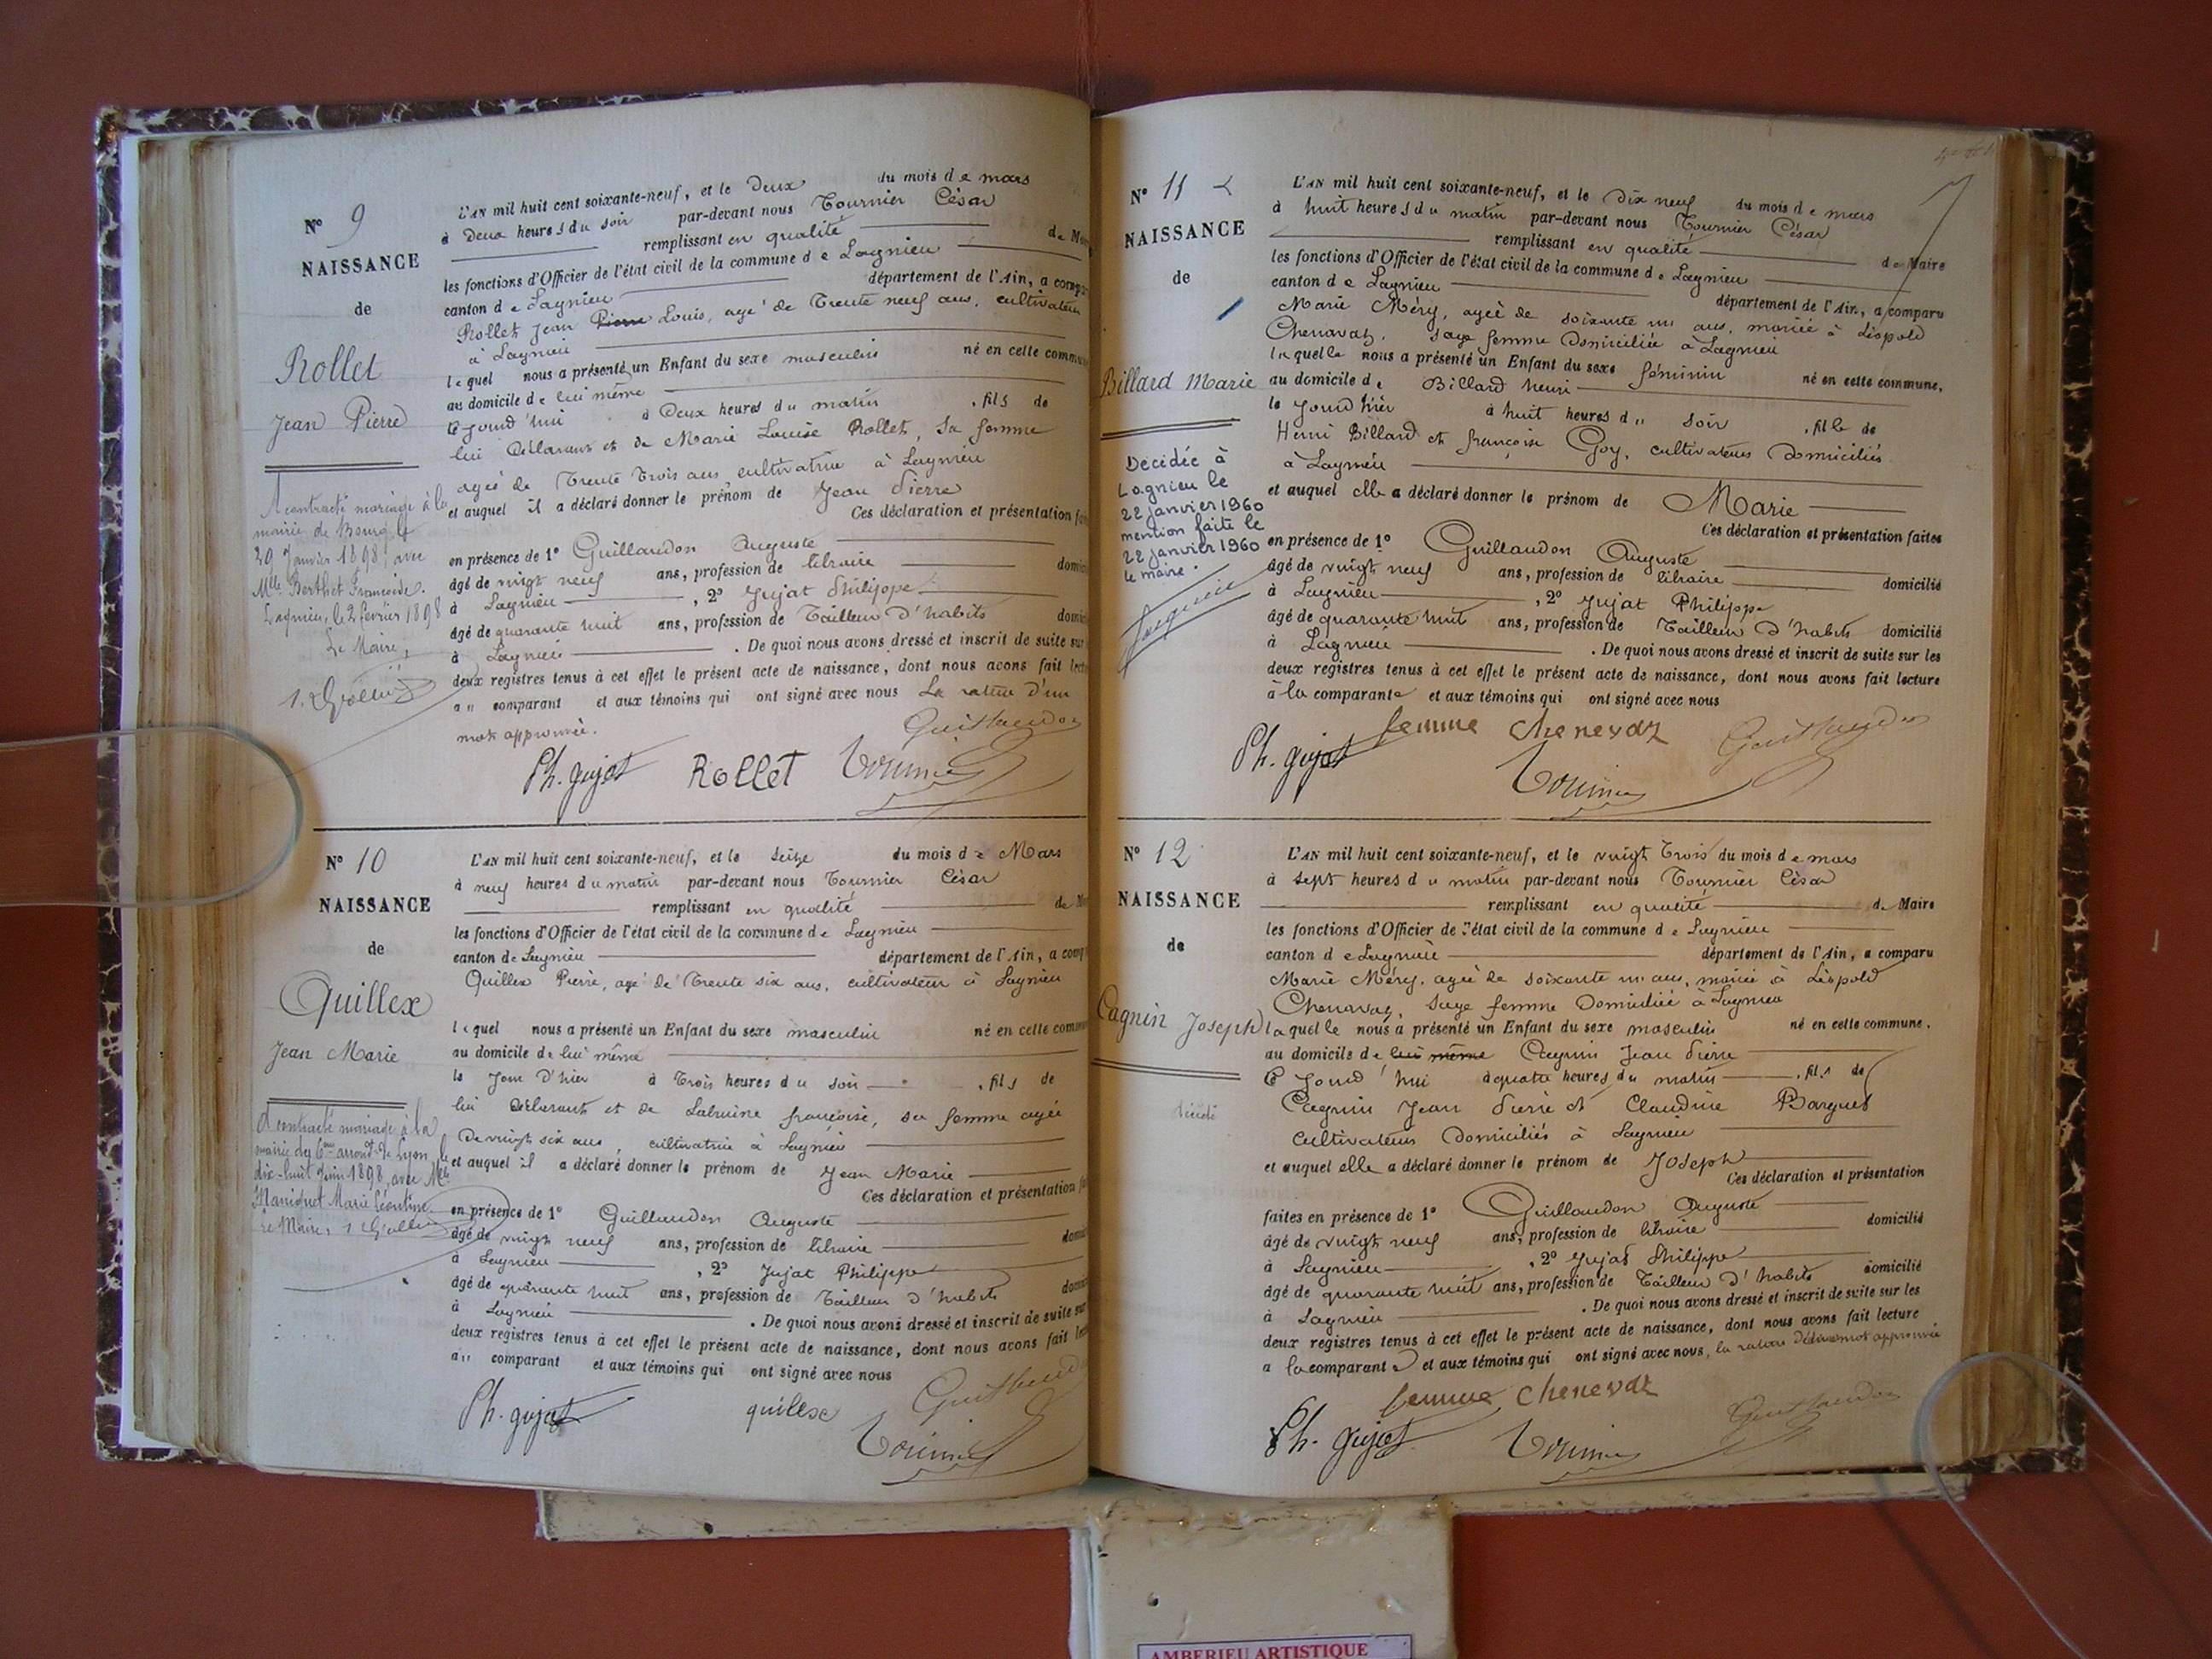 N° 9
NAISSANCE
de
Rollet
Jean Pierre
A contracté mariage à la
mairie de Bourg le
29 Janvier 1898, avec
Mlle Berthet Françoise.
Lagnieu, le 2 février 1898
Le Maire,
L'AN mil huit cent soixante-neuf, et le Deux du mois de mars
à Deux heures du soir par-devant nous Tournier César
remplissant en qualité de
les fonctions d'Officier de l'état civil de la commune de Lagnieu
canton de Lagnieu département de l'Ain, a
Rollet Jean Pierre Louis, agé de Trente neuf ans, cultivateur
à Lagnieu
lequel nous a présenté un Enfant du sexe masculin né en cette
au domicile de lui même
ce jourd'hui à Deux heures du matin , fils de
lui Déclarant et de Marie Louise Rollet, sa femme
agée de Trente Trois ans, cultivatrice à Lagnieu
et auquel il a déclaré donner le prénom de Jean Pierre
Ces déclaration et présentation
en présence de 1° Guillaudon Auguste
âgé de vingt neuf ans, profession de libraire
à Lagnieu , 2° Jujat Philippe
âgé de quarante huit ans, profession de Tailleur D'habits
à Lagnieu . De quoi nous avons dressé et inscrit de suite sur
deux registres tenus à cet effet le présent acte de naissance, dont nous avons fait
au comparant et aux témoins qui ont signé avec nous La rature d'un
mot approuvée.
Guillaudon
Ph. gujat Rollet Tournier
N° 10
NAISSANCE
de
Quillex
Jean Marie
A contracté mariage à la
mairie du 6me arrondt de Lyon, le
dix-huit Juin 1898, avec Mlle
Maniquet Marie Léontine.
Le Maire,
L'AN mil huit cent soixante-neuf, et le seize du mois de Mars
à neuf heures du matin par-devant nous Tournier César
remplissant en qualité de
les fonctions d'Officier de l'état civil de la commune de Lagnieu
canton de Lagnieu département de l'Ain, a
Quillex Pierre, agé de Trente six ans, cultivateur à Lagnieu
lequel nous a présenté un Enfant du sexe masculin né en cette
au domicile de lui même
le Jour D'hier à Trois heures du soir , fils de
lui Déclarant et de Labruine françoise, sa femme agée
De vingt six ans, cultivatrice à Lagnieu
et auquel il a déclaré donner le prénom de Jean Marie
Ces déclaration et présentation
en présence de 1° Guillaudon Auguste
âgé de vingt neuf ans, profession de libraire
à Lagnieu , 2° Jujat Philippe
âgé de quarante huit ans, profession de Tailleur D'habits
à Lagnieu . De quoi nous avons dressé et inscrit de suite sur
deux registres tenus à cet effet le présent acte de naissance, dont nous avons fait
au comparant et aux témoins qui ont signé avec nous
Ph. gujat quilex Guillaudon
Tournier
N° 11
NAISSANCE
de
Billard Marie
Décédée à
Lagnieu le
22 janvier 1960
mention faite le
22 janvier 1960
le maire.
L'AN mil huit cent soixante-neuf, et le Dix neuf du mois de mars
à huit heures du matin par-devant nous Tournier César
remplissant en qualité de Maire
les fonctions d'Officier de l'état civil de la commune de Lagnieu
canton de Lagnieu département de l'Ain, a comparu
Marie Méry, agée de soixante un ans, mariée à Léopold
Chenavaz, sage femme Domiciliée à Lagnieu
laquelle nous a présenté un Enfant du sexe féminin né en cette commune,
au domicile de Billard henri
le jourd'hier à huit heures du soir , fille de
Henri Billard et françoise Goy, cultivateurs Domiciliés
à Lagnieu
et auquel elle a déclaré donner le prénom de Marie
Ces déclaration et présentation faites
en présence de 1° Guillaudon Auguste
âgé de vingt neuf ans, profession de libraire domicilié
à Lagnieu , 2° Jujat Philippe
âgé de quarante huit ans, profession de Tailleur D'habits domicilié
à Lagnieu . De quoi nous avons dressé et inscrit de suite sur les
deux registres tenus à cet effet le présent acte de naissance, dont nous avons fait lecture
à la comparante et aux témoins qui ont signé avec nous
femme chenevaz Guillaudon
Ph. gujat Tournier
N° 12
NAISSANCE
de
Cagnin Joseph
décédé
L'AN mil huit cent soixante-neuf, et le vingt Trois du mois de mars
à sept heures du matin par-devant nous Tournier César
remplissant en qualité de Maire
les fonctions d'Officier de l'état civil de la commune de Lagnieu
canton de Lagnieu département de l'Ain, a comparu
Marie Méry, agée de soixante un ans, mariée à Léopold
Chenavaz, sage femme Domiciliée à Lagnieu
laquelle nous a présenté un Enfant du sexe masculin né en cette commune.
au domicile de lui même Cagnin Jean Pierre
ce Jourd'hui à quatre heures du matin , fils de
Cagnin Jean Pierre et Claudine Barguet
cultivateurs Domiciliés à Lagnieu
et auquel elle a déclaré donner le prénom de Joseph
Ces déclaration et présentation
faites en présence de 1° Guillaudon Auguste
âgé de vingt neuf ans, profession de libraire domicilié
à Lagnieu , 2° Jujat Philippe
âgé de quarante huit ans, profession de Tailleur D'habits domicilié
à Lagnieu . De quoi nous avons dressé et inscrit de suite sur les
deux registres tenus à cet effet le présent acte de naissance, dont nous avons fait lecture
a la comparante et aux témoins qui ont signé avec nous, la rature De deux mots approuvée
femme chenevaz
Ph. gujat Tournier Guillaudon
AMBERIEU ARTISTIQUE